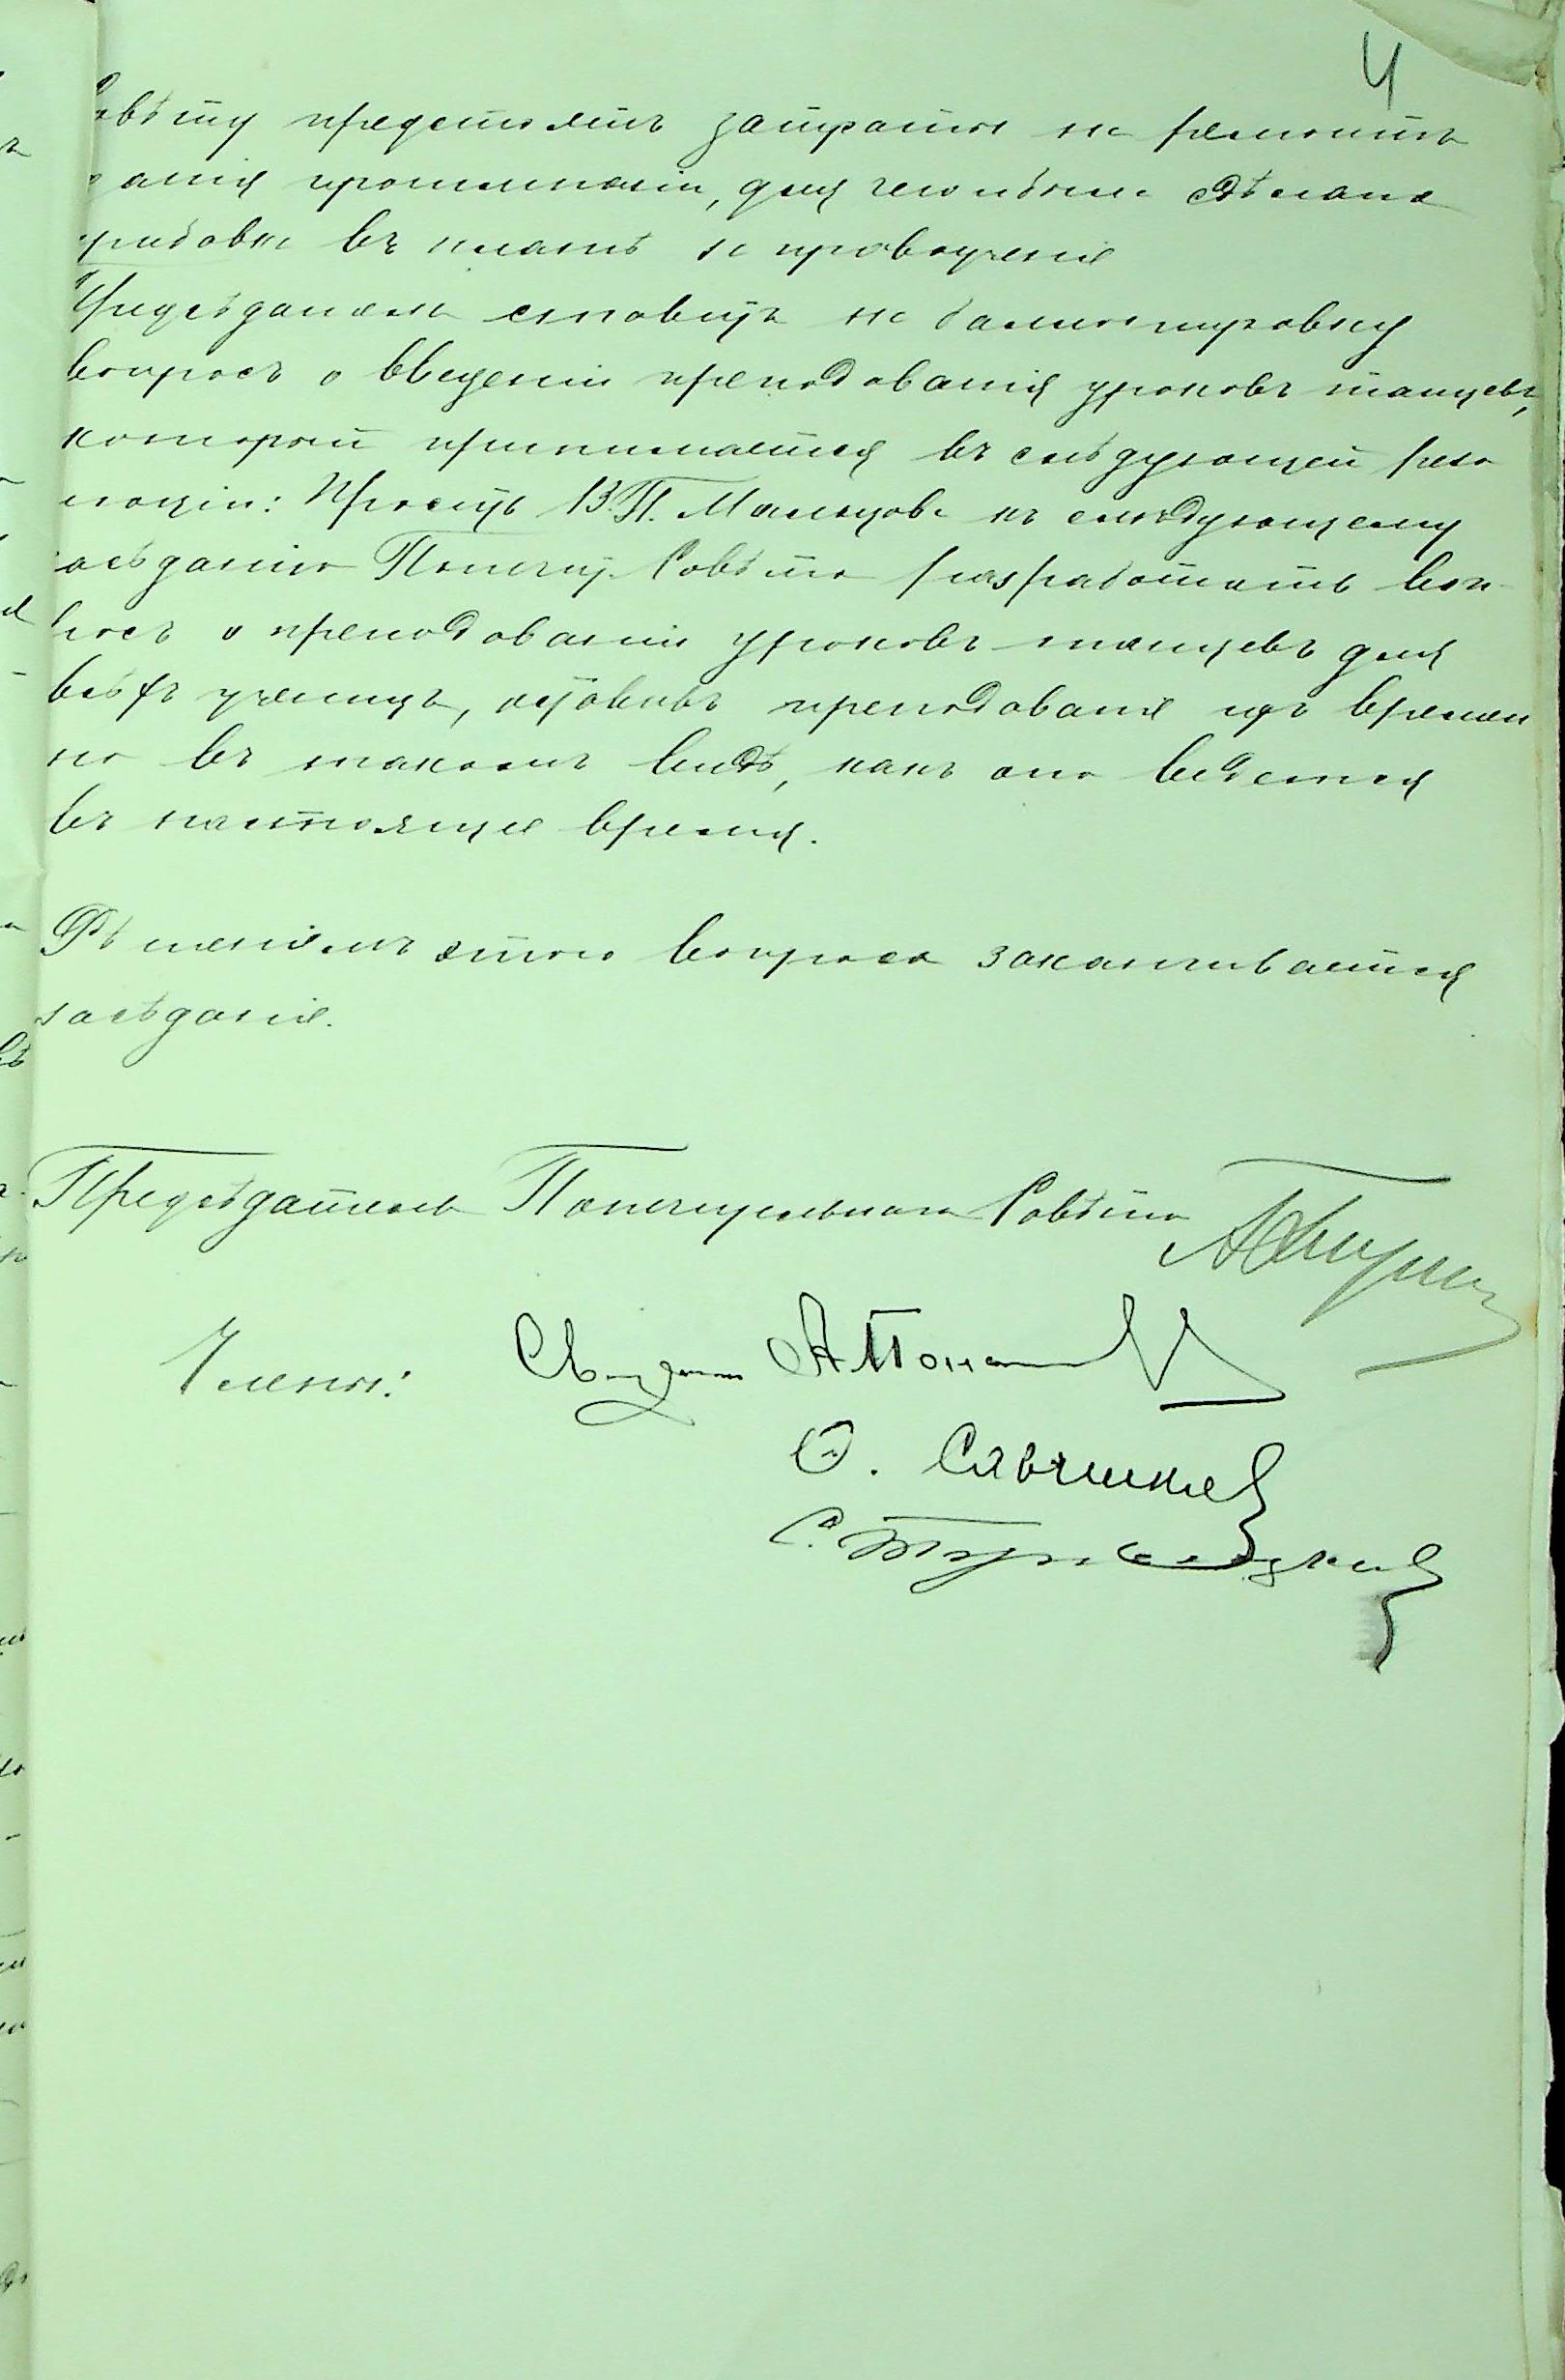 4
Совѣту предстоятъ затраты на ремонтъ
зданія прогимназіи, для чего и была сдѣлана
прибавка въ платѣ за правоученіе
Предсѣдатель ставитъ на баллотировку
вопросъ о введеніи преподаванія уроковъ танцевъ,
который принимается въ слѣдующей резо
люціи: Просить В. П. Мальцова къ слѣдующему
засѣданію Попечит. Совѣта разработать воп-
росъ о преподаваніи уроковъ танцевъ для
всѣхъ ученицъ, оставивъ преподаваніе ихъ времен
но въ такомъ видѣ, какъ оно ведется
въ настоящее время.
Рѣшеніемъ этого вопроса заканчивается
засѣданіе.
Предсѣдатель Попечительнаго Совѣта
Члены: